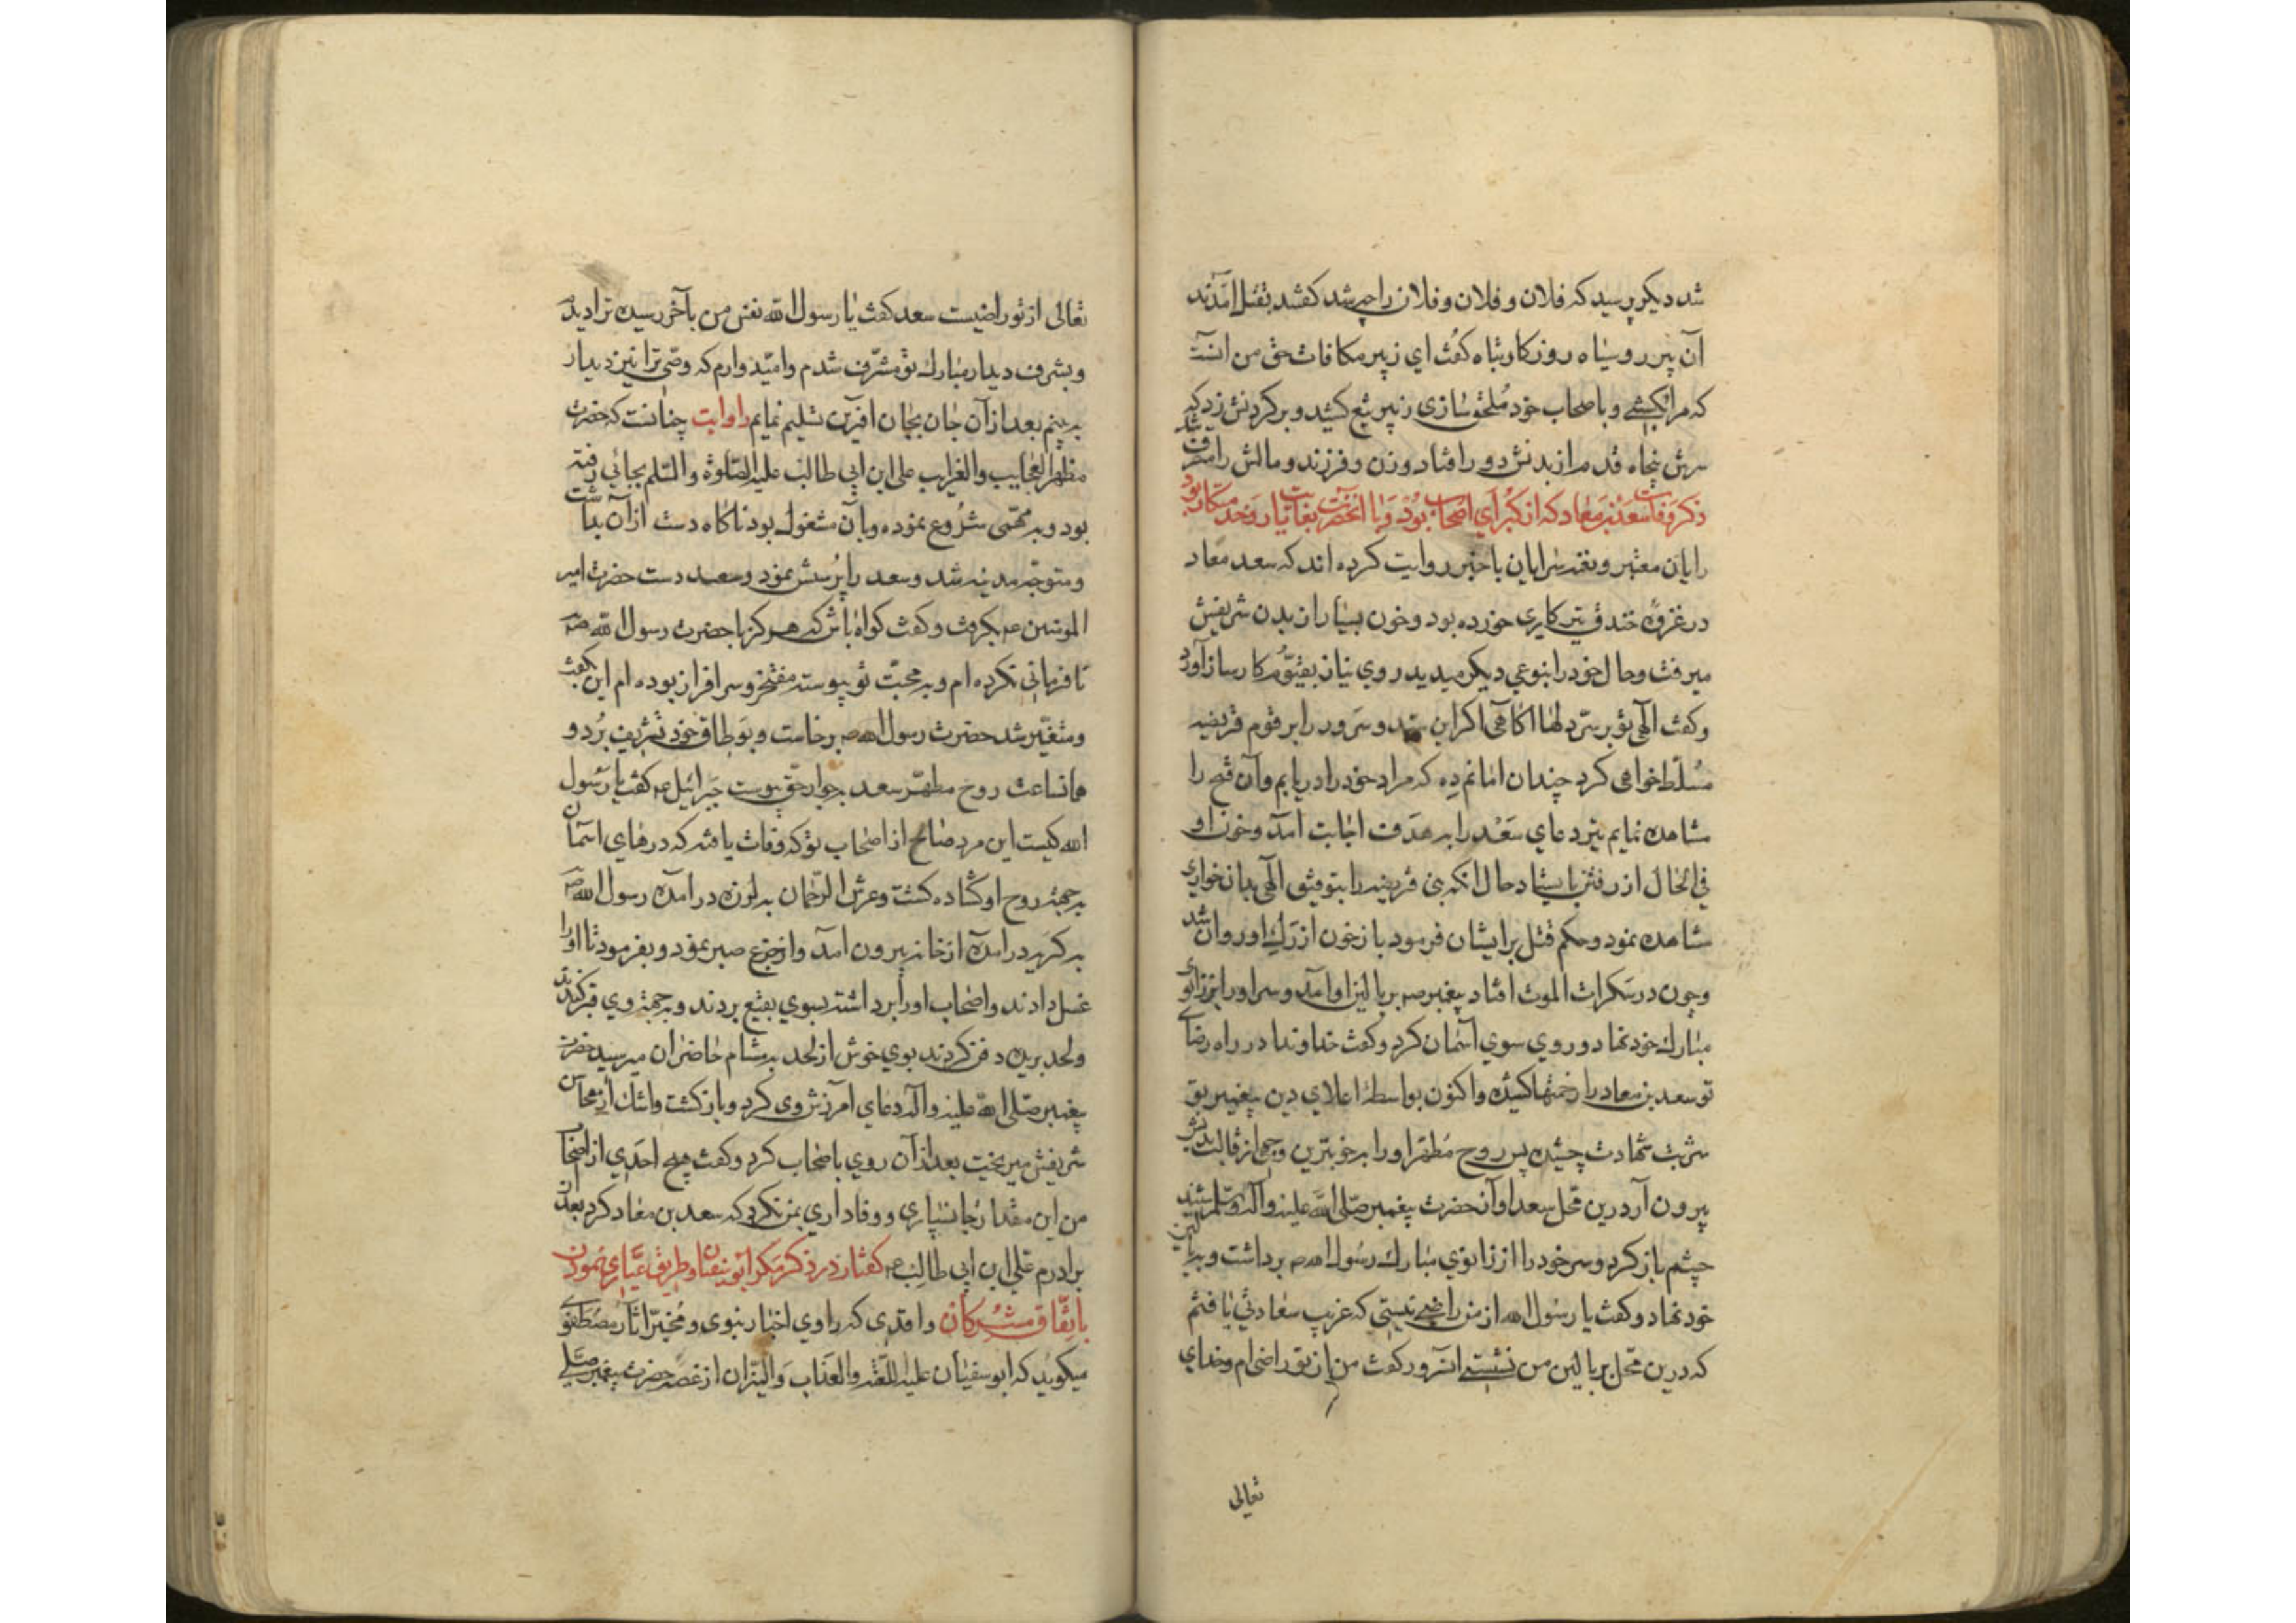 شد دیکر پرسید که فلان و فلان و فلان را چه شد کفتند بقتل امدند
آن پیر رو سیاه روزکار تباه کفت ای زبیر مکافات حق من انست
که مرا بکشے و باصحاب خود ملحق سازی زبیر تیغ کشید و بر کردنش زد که
سرش پنجاه قدم از بدنش دور افتاد و زن و فرزند و مالش را متصرف شد
ذکر وفات سعد بن معاد که از کبرای اصحاب بود و با انحضرت بغایت یار و
رایان معتبر و نقد سرایان با خبر روایت کرده اند که سعد معاد
در غزوه خندق تیر کاری خورده بود و خون بسیار از بدن شریفش
میرفت و حال خود را بنوعی دیکر میدید روی نیاز بقیوم کارساز آورد
و کفت الهی تو بر سر دلها اکاهی اکر این سرور را بر قوم قریضه
مسلط خواهی کرد چندان امانم ده که مراد خود را دریابم و آن فتح را
مشاهده نمایم تیر دعای سعد را به هدف اجابت امد و خون او
فی الحال از رفتن بایستاد حال انکه بنی قریضه را بتوفیق الهی بدان خواری
مشاهده نمود و حکم قتل بر ایشان فرمود باز خون از رک او روان شد
و چون در سکرات الموت افتاد پیغمبر صم بر بالین او امد و سر او را بر زانوی
مبارک خود نهاد و روی سوی آسمان کرد و کفت خداوندا در راه رضای
تو سعد بن معاد را زخمتها کشیده و اکنون بواسطه اعلای دین پیغمبر تو
شربت شهادت چشیده پس روح مطهر او را به خوبترین وجهی از قالب بدنش
بیرون آر درین محل سعد اواز حضرت پیغمبر صلی الله علیه و آله و سلم شنید
چشم باز کرد و سر خود را از زانوی مبارک رسول الله صم برداشت و به بالین
خود نهاد و کفت یا رسول الله از من راضے نیستی که غریب سعادتی یافتم
که درین محل بر بالین من نشستے انسرور کفت من از تو راضی ام و خدای
تعالی
تعالی از تو راضیست سعد کفت یا رسول الله نفس من بآخر رسیده ترا دیدم
و بشرف دیدار مبارک تو مشرف شدم و امید وارم که وصی ترا نیز دیدار
به بینم بعد از آن جان بجان افرین تسلیم نمایم راوایت چنانست که حضرت
مظهر العجایب و الغرایب علی ابن ابی طالب علیه الصلوة و السلم بجائی رفته
بود و به مهمی شروع نموده و بآن مشغول بود ناکاه دست از آن بداشت
و متوجه مدینه شد و سعد را پرسش نمود و سعد دست حضرت امیر
المومنین عم بکرفت و کفت کواه باش که هرکز با حضرت رسول الله صم
نافرمانی نکرده ام و به محبت تو پیوسته مفتخر و سرافراز بوده ام این کفت
و متغیر شد حضرت رسول الله صم برخاست و بوطاق خود تشریف برد و
همانساعت روح مطهر سعد بجوار حق پیوست جبرائیل عم کفت یا رسول
الله کیست این مرد صالح از اصحاب تو که وفات یافته که درهای اسمان
به جهة روح او کشاده کشت و عرش الرحمان به لرزه در امده رسول الله صم
به کریه در امده از خانه بیرون امد و از جزع صبر نمود و بفرمود تا او را
غسل دادند و اصحاب او را برداشته بسوی بقیع بردند و به جهة وی قبر کندند
و لحد بریده دفن کردند بوی خوش از لحد به مشام حاضران میرسید حضرت
پیغمبر صلی الله علیه و آله دعای آمرزش وی کرد و باز کشت و اشک از محاسن
شریفش میریخت بعد از آن روی باصحاب کرد و کفت هیچ احدی از اصحاب
من این مقدار جانسپاری و وفاداری بمن نکرد که سعد بن معاد کرد بعد از
برادرم علی ابن ابی طالب عم کفتار در ذکر مکر ابو سفیان و طریق عیاری نمودن
باتفاق مشرکان واقدی که راوی اخبار نبوی و مخبر اثار مصطفوے
میکوید که ابو سفیان علیه اللعنة و العذاب و النیران از غصه حضرت پیغمبر صلے